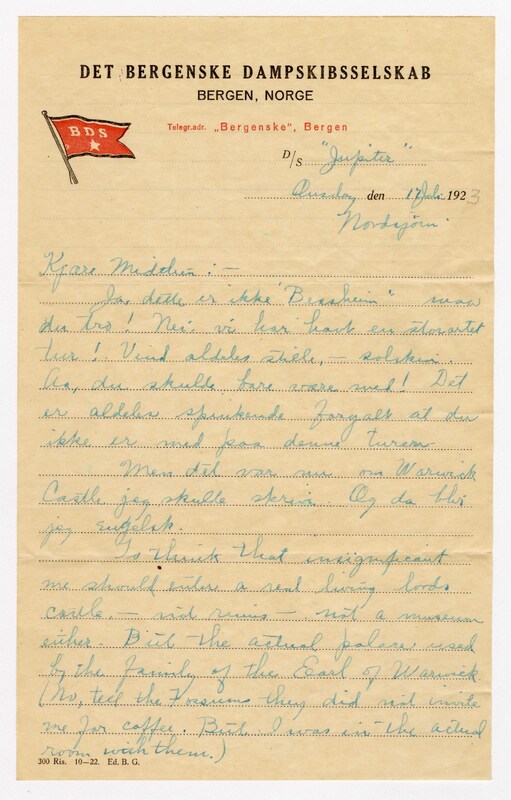 DET BERGENSKE DAMPSKIBSSELSKAB
BERGEN, NORGE
Telegr.adr. „Bergenske“, Bergen
BDS
D/S "Jupiter"
Onsdag den 17 Juli 1923
Nordsjøen.
Kjære :—
Ja, dette er ikke "Bessheim" maa
du tro! Nei: vi har havt en storartet
tur! Vind aldeles stille, — solskin.
Aa, du skulde bare være med! Det
er aldeles spikende forgalt at du
ikke er med paa denne turen
Men det var nu om Warwick
Castle jeg skulde skrive. Og da blir
jeg engelsk.
To think that insignificant
me should enter a real living lords
castle, — not ruins — not a museum
either. But the actual palace used
by the family of the Earl of Warwick
(No, tell the they did not invite
me for coffee. But I was in the actual
room with them.)
300 Ris. 10—22. Ed. B. G.